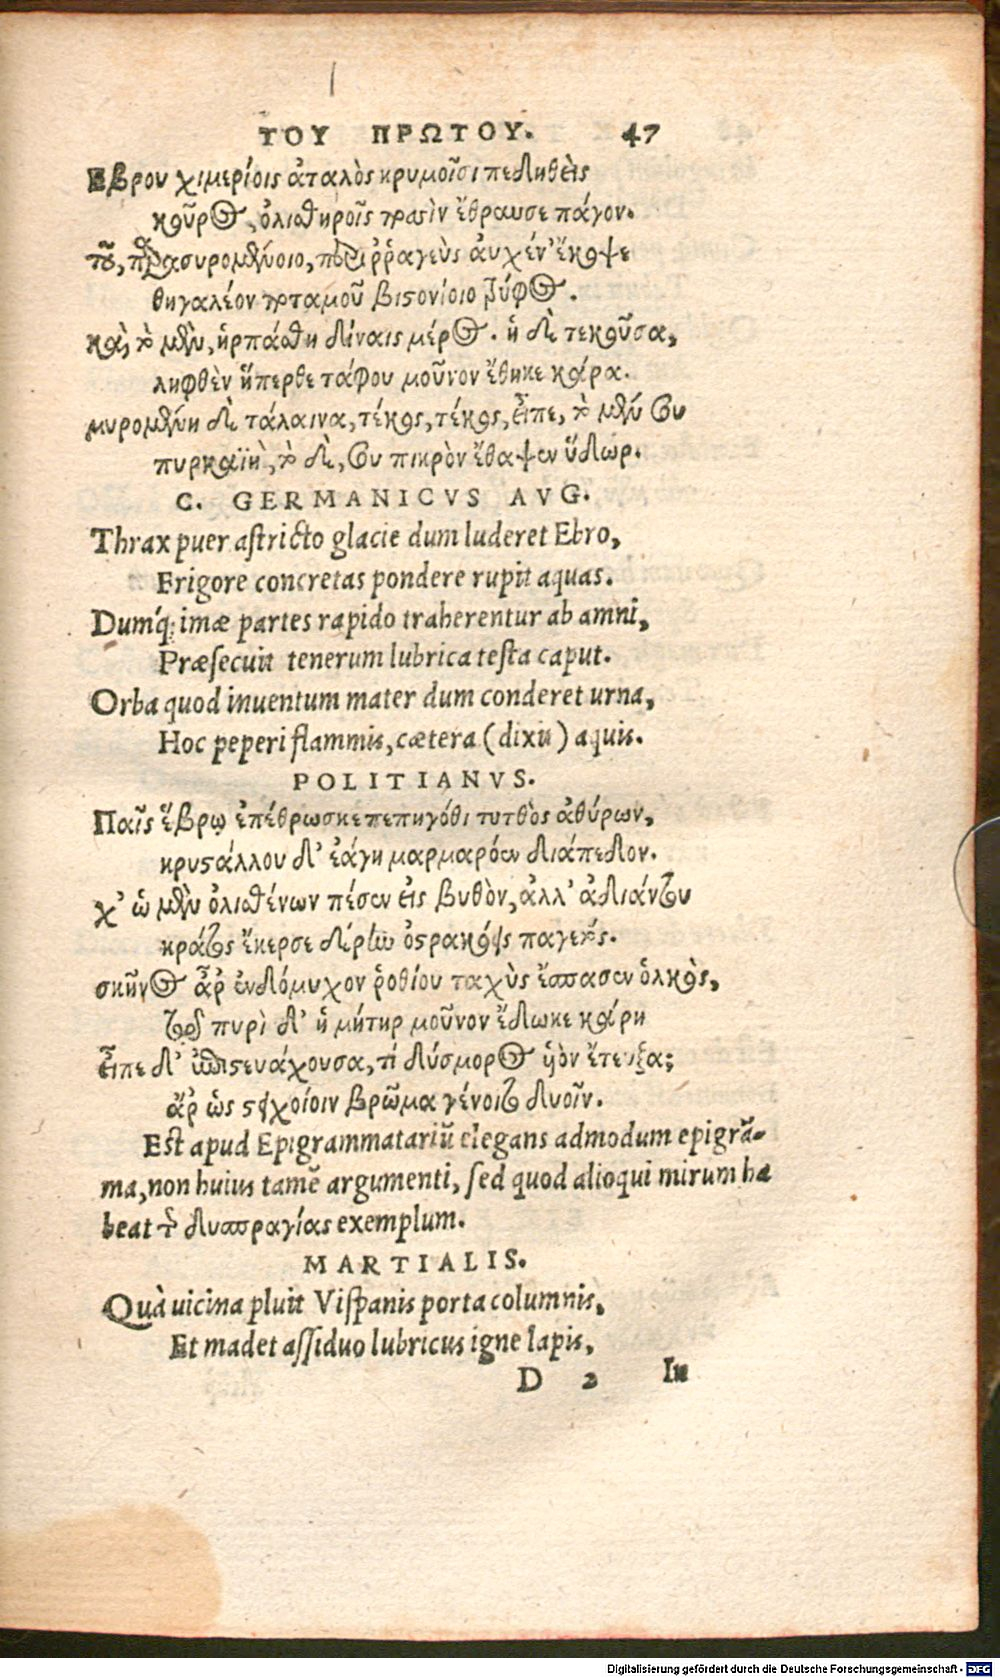 ΤΟΥ ΠΡΩΤΟΥ. 47
Εβρου χιμερίοις ἀταλὸς κρυμοῖσι πεδηθεὶς
κοῦρος, ὀλισθηροῖς ποσὶν ἔθραυσε πάγον.
τοῦ, παρασυρομένοιο, περιῤῥαγεὺς αὐχέν' ἔκοψε
θηγαλέον ποταμοῦ βιστονίοιο τρύφος.
καὶ τὸ μὲν, ἡρπάσθη δίναις μέρος. ἡ δὲ τεκοῦσα,
ληφθὲν ὕπερθε τάφου μοῦνον ἔθηκε κάρα.
μυρομένη δὲ τάλαινα, τέκος, τέκος, εἶπε, τὸ μέν σου
πυρκαϊὴ, τὸ δὲ, σου πικρὸν ἔθαψεν ὕδωρ.
C. GERMANICVS AVG.
Thrax puer astricto glacie dum luderet Ebro,
Frigore concretas pondere rupit aquas.
Dumq́; imæ partes rapido traherentur ab amni,
Præsecuit tenerum lubrica testa caput.
Orba quod inuentum mater dum conderet urna,
Hoc peperi flammis, cætera (dixit) aquis.
POLITIANVS.
Παῖς ἕβρῳ ἐπέθρωσκε πεπηγόθι τυτθὸς ἀθύρων,
κρυστάλλου δ' ἐάγη μαρμαρόεν διάπεδον.
χ' ὡ μὲν ὀλισθένων πέσεν εἰς βυθὸν, ἀλλ' ἀδιάντου
κράτος ἔκερσε δέρην ὀστρακόψς παγετός.
σκῆνος ἂρ ἐνδόμυχον ῥοθίου ταχὺς ἔσπασεν ὁλκὸς,
τῷδε πυρὶ δ' ἡ μήτηρ μοῦνον ἔδωκε κάρη
εἶπε δ' ἐπιστενάχουσα, τί δύσμορος ᾑὸν ἔτευξα;
ἂρ ὡς στοιχοίοιν βρῶμα γένοιτο δυοῖν.
Est apud Epigrammatariũ elegans admodum epigrã-
ma, non huius tamẽ argumenti, sed quod alioqui mirum ha
beat τῆς δυσπραγίας exemplum.
MARTIALIS.
Quà uicina pluit Vispanis porta columnis,
Et madet assiduo lubricus igne lapis,
D 2 In
Digitalisierung gefördert durch die Deutsche Forschungsgemeinschaft - DFG